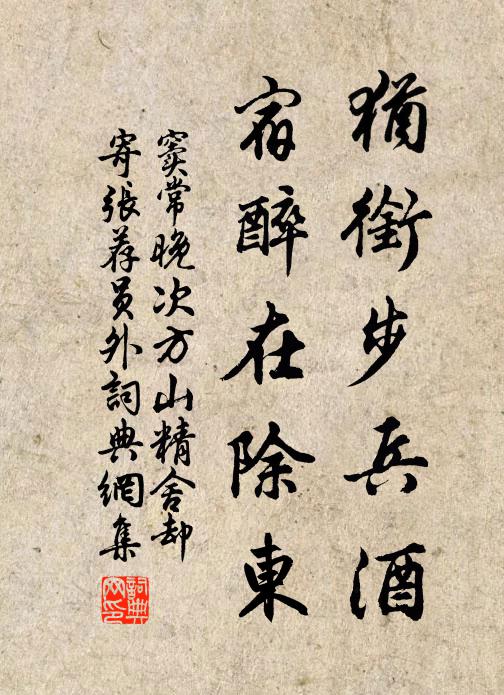 猶銜步兵酒
宿醉在除東
竇常晚次方山精舍却
寄張荐員外詞典網集
詞典网印